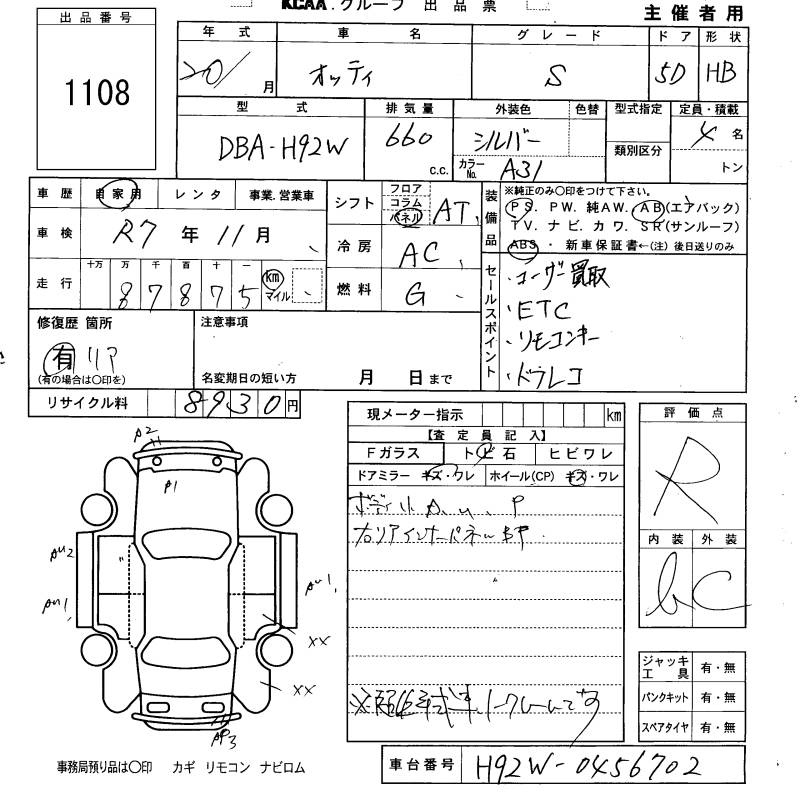 KCAA.グループ 出品票
主催者用
出品番号
1108
年式 車名 グレード ドア 形状
20/ 月 オッティ S 5D HB
型式 排気量 外装色 色替 型式指定 定員・積載
DBA-H92W 660 c.c. シルバー カラーNo. A31 類別区分 4 名 トン
車歴 自家用 レンタ 事業.営業車
車検 R7 年 11 月
走行 十万 万 千 百 十 一
8 7 8 7 5 km マイル
シフト フロア コラム パネル AT
冷房 AC
燃料 G
装備品
※純正のみ〇印をつけて下さい。
PS. PW. 純AW. AB(エアバック)
TV. ナビ. カワ. SR(サンルーフ)
ABS・新車保証書←(注)後日送りのみ
セールスポイント
・ユーザー買取
・ETC
・リモコンキー
・ドラレコ
修復歴 箇所
有 リア
(有の場合は〇印を)
注意事項
名変期日の短い方 月 日まで
リサイクル料 8930円
現メーター指示 km
【査定員記入】
Fガラス トビ石 ヒビワレ
ドアミラー キズ・ワレ ホイール(CP) キズ・ワレ
右リアインナーパネルBP
※現状 ノークレームです
評価点
R
内装 外装
b C
ジャッキ工具 有・無
パンクキット 有・無
スペアタイヤ 有・無
A2
P1
AU2
AU1
AU1
XX
XX
AP3
事務局預り品は〇印 カギ リモコン ナビロム
車台番号 H92W-0456702